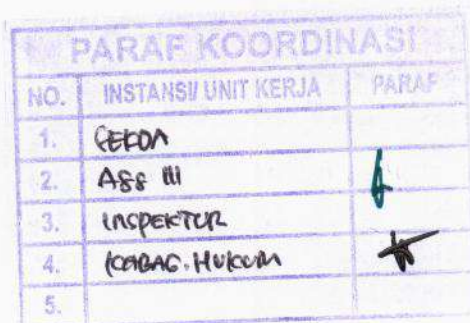 PARAF KOORDINASI
NO. INSTANSI/ UNIT KERJA PARAF
1. SEKDA
2. ASS III
3. INSPEKTUR
4. KABAG. HUKUM
5.